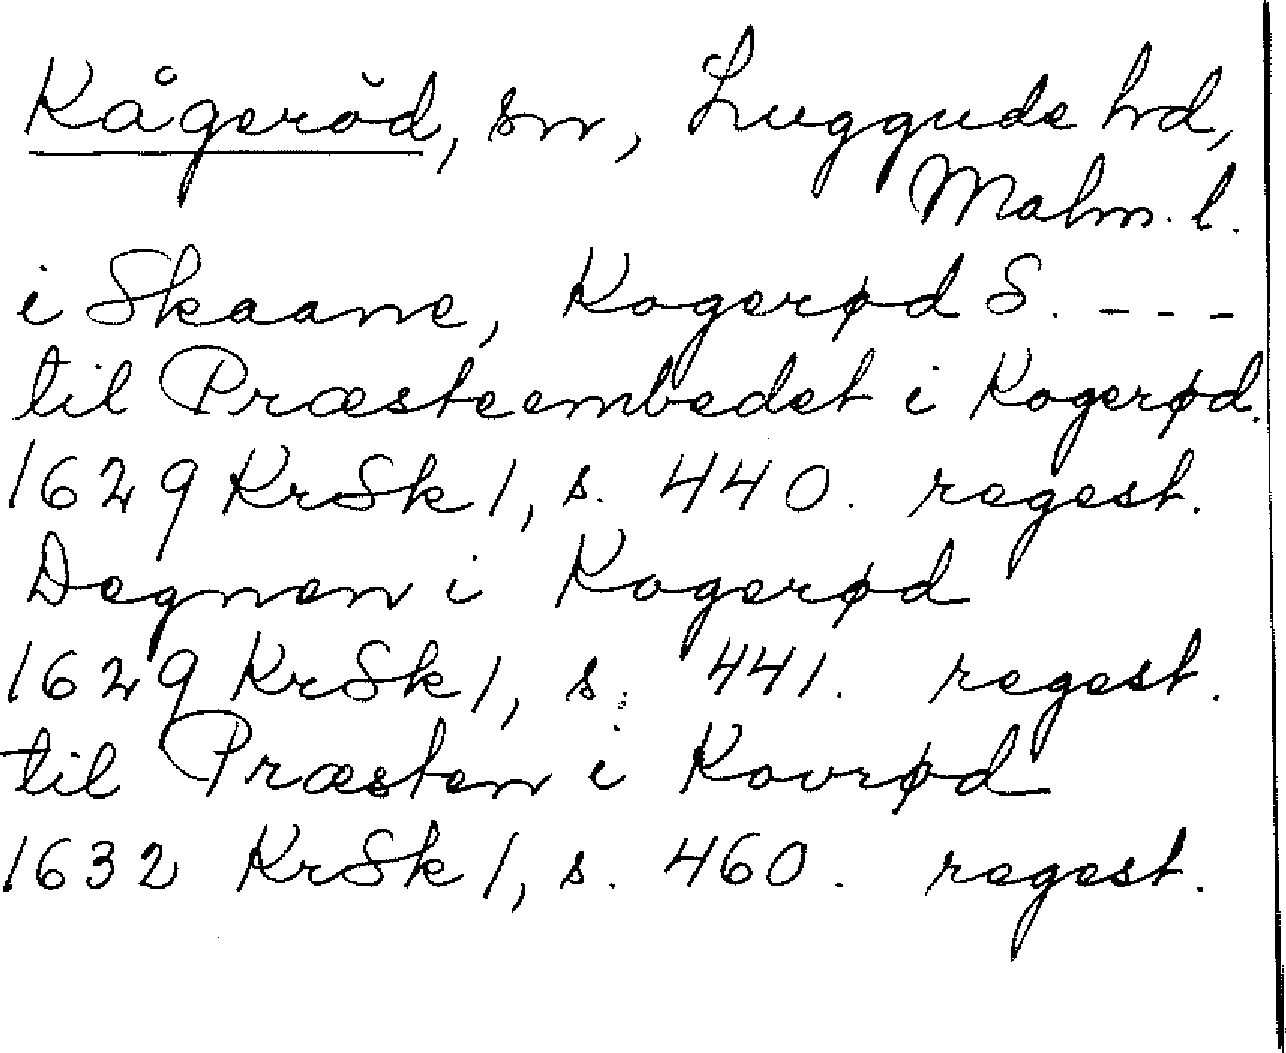 Kågeröd, sn, Luggude hd,
Malm. l.
i Skaane, Kogerød S. - - -
til Præsteembedet i Kogerød.
1629 KrSk 1, s. 440. regest.
Degnen i Kogerød
1629 KrSk 1, s. 441. regest.
til Præsten i Kovrød
1632 KrSk 1, s. 460. regest.